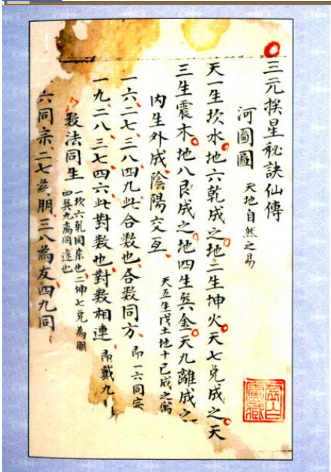 三元挨星秘訣仙傳
河圖圖 天地自然之易
天一生坎水地六乾成之地二生坤火天七兌成之天
三生震木地八艮成之地四生巽金天九離成之
內生外成陰陽交互 天五生戊土地十己成之寄
一六二七三八四九此合數也合數同方 即一六同宗
一九二八三七四六此對數也對數相連 即戴九
數法同生 一坎六乾同宗也二坤七兌為朋
四巽九离同道也
六同宗二七為朋三八為友四九同